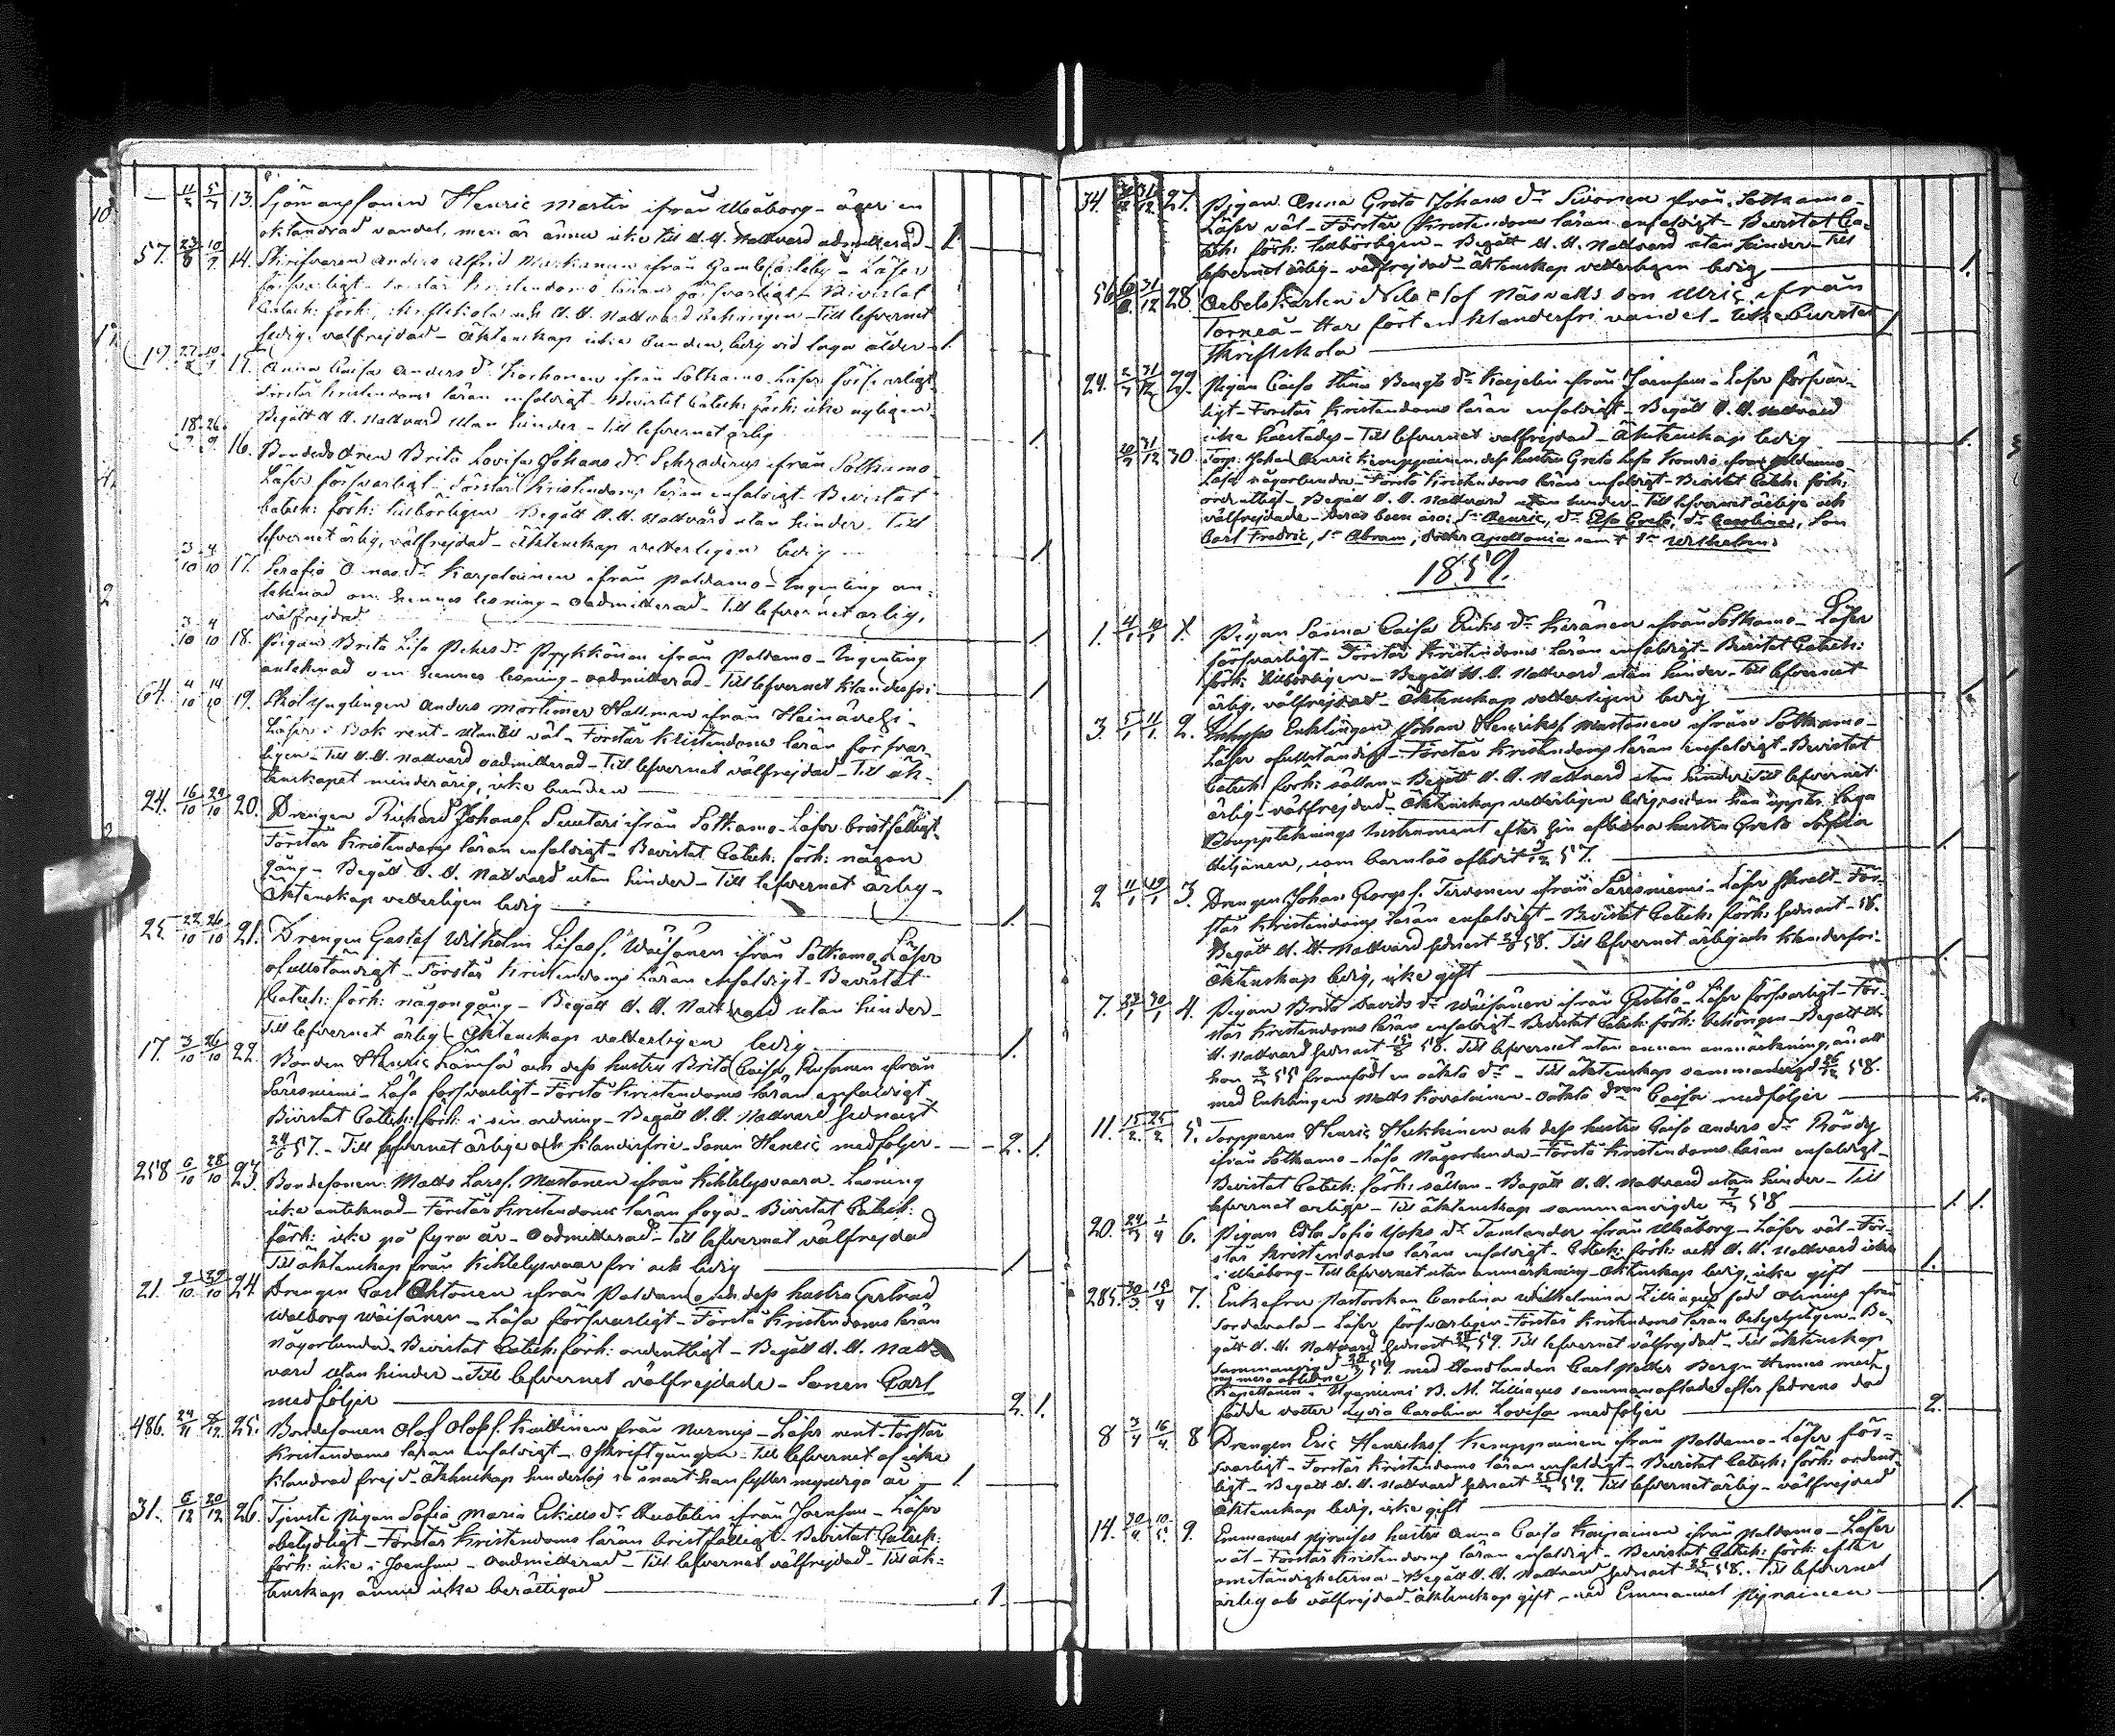 13. Sjömanssonen Henric Martin ifrån Uleåborg - äger en
oklandrad vandel, men är ännu icke till H. H. Nattvard admitterad 1
57. 14. Skrifvaren Anders Alfrid ifrån Gamlecarleby - Läser
försvarligt - Förstår Kristendoms läran försvarligt - Bevistat
Catech: förh:, skriftskola och H. H. Nattvard behörigen - Till lefvernet
ledig, välfrejdad - Äktenskap icke bunden, ledig vid laga ålder 1.
19. 15. Anna Caisa Anders Dr Korhonen ifrån Sotkamo Läser försvarligt
Förstår Kristendoms läran enfaldigt - Bevistat Catech: förh: icke nyligen
Begått H. H. Nattvard utan hinder - Till lefvernet ärlig 1.
18/9 26/9 16. Bondedottren Brita Lovisa Johans Dr Schroderus ifrån Sotkamo
Läser försvarligt - Förstår Kristendoms läran enfaldigt - Bevistat
Catech: förh: tillbörligen - Begått H. H. Nattvard utan hinder - Till
lefvernet ärlig, välfrejdad - Äktenskap vetterligen ledig 1.
3/10 4/10 17. Serafia Dr Karjalainen ifrån Paldamo - Ingenting an-
teknad om hennes lesning - oadmitterad - Till lefvernet ärlig,
välfrejdad 1
3/10 4/10 18. Pigan Brita Lisa Pehrs Dr Pyykkönen ifrån Paldamo - Ingenting
anteknad om hennes lesning - oadmitterad - Till lefvernet klanderfri 1
64. 4/10 14/10 19. Skol ynglingen Anders Mortimer Hallman ifrån Heinävesi -
Läser i Bok rent - utantill väl - Förstår Kristendoms läran försvar
ligen - Till H. H. Nattvard oadmitterad - Till lefvernet välfrejdad - Till äk-
tenskapet minderårig, icke bunden 1
24. 16/10 20. Drengen Richard Johans f. ifrån Sotkamo - Läser bristfälligt
Förstår Kristendoms läran enfaldigt - Bevistat Catech: förh: någon
gång - Begått H. H. Nattvard utan hinder - Till lefvernet ärlig -
Äktenskap vetterligen ledig 1.
25. 22/10 26/10 21. Drengen Gustaf Wilhelm Wäisänen ifrån Sotkamo Läser
ofullständigt - Förstår Kristendoms läran enfaldigt - Bevistat
Catech: förh: någongång - Begått H. H. Nattvard utan hinder -
Till lefvernet ärlig - Äktenskap vetterligen ledig 1.
17. 3/10 26/10 22. Bonden Henric och dess hustru Brita Caisa ifrån
Säresniemi - Läsa försvarligt - Förstå Kristendoms läran enfaldigt
Bevistat Catech: förh: i sin ordning - Begått H. H. Nattvard sednast
57. - Till lefvernet ärlige och klanderfrie - Sonen Henric medföljer - 2. 1.
258 6/10 28/10 23. Bondesonen Matts Lars f. Mustonen ifrån Kihtelysvaara - Läsning
icke anteknad - Förstår Kristendoms läran föga - Bevistat Catech:
förh: icke på fyra år - oadmitterad - Till lefvernet välfrejdad
Till äktenskap från Kihtelysvaar fri och ledig 1
21. 24. Drengen Carl Ahtonen ifrån Paldamo och dess hustru Gertrud
Walborg Wäisänen - Läsa försvarligt - Förstå Kristendoms läran
någorlunda - Bevistat Catech: förh: ordentligt - Begått H. H. Natt-
vard utan hinder - Till lefvernet välfrejdade - Sonen Carl
medföljer 2. 1.
486. 25. Bondesonen Olof Olofs f. från Nurmis - Läser rent - Förstår
Kristendoms läran enfaldigt - Oskriftgången - Till lefvernet af icke
klandrad frejd - Äktenskap hinderlös så snart han fyller myndiga år 1
31. 6/12 20/12 26. Tjenste pigan Sofia Maria ifrån Joensuu - Läser
obetydligt - Förstår Kristendoms läran bristfälligt - Bevistat Catech:
förh: icke i Joensuu - oadmitterad - Till lefvernet välfrejdad - Till äk-
tenskap ännu icke berättigad 1
34. 31/12 27. Pigan Anna Greta Johans Dr Sivonen ifrån Sotkamo -
Läser väl - Förstår Kristendoms läran enfaldigt - Bevistat Ca-
tech: förh: tillbörligen - Begått H. H. Nattvard utan hinder - Till
lefvernet ärlig - välfrejdad - Äktenskap vetterligen ledig 1.
56 31/12 28. Arbetskarlen Nils Olof Näsvalls son Ulric ifrån
Torneå - Har fört en klanderfri vandel - Icke bevistat
Skriftskola 1
24. 31/12 29. Pigan Caisa Stina Bengts Dr ifrån Joensuu - Läser försvar-
ligt - Förstår Kristendoms läran enfaldigt - Begått H. H. Nattvard
icke härstädes - Till lefvernet välfrejdad - Äktenskap ledig 1.
31/12 30. Torp: Johan Henric Kemppainen, dess hustru Greta Lisa ifrån Paldamo
Läsa någorlunda - Förstå Kristendoms läran enfaldigt - Bevistat Catech: förh:
ordentligt - Begått H. H. Nattvard utan hinder - Till lefvernet ärlige och
välfrejdade - Deras barn äro: Sn Henric, Dr Elsa Greta, Dr Carolina, Son
Carl Fredric, Sn Abram, Dotter Apollonia samt Sn Wilhelm
1859.
1. 1. Pigan Sanna Caisa Eriks Dr Keränen ifrån Sotkamo - Läser
försvarligt - Förstår Kristendoms läran enfaldigt - Bevistat Catech:
förh: tillbörligen - Begått H. H. Nattvard utan hinder - Till lefvernet
ärlig, välfrejdad - Äktenskap vetterligen ledig 1.
3. 5/1 11/1 2. Inhyses Enklingen Johan Henriks f. Mustonen ifrån Sotkamo -
Läser ofullständigt - Förstår Kristendoms läran enfaldigt - Bevistat
Catech: förh: sällan - Begått H. H. Nattvard utan hinder Till lefvernet
ärlig - välfrejdad - Äktenskap vetterligen ledig, sedan han uppter laga
Boupptecknings Instrument efter sin aflidna hustru Greta Sofia
, som barnlös aflidit 57. 1
2 11/1 19/1 3. Drengen Johan Georgs f. Tervonen ifrån Säresniemi - Läser - För-
står Kristendoms läran enfaldigt - Bevistat Catech: förh: sednast - 58.
Begått H. H. Nattvard sednast 58. Till lefvernet ärlig och klanderfri -
Äktenskap ledig, icke gift 1.
7. 4. Pigan Brita Davids Dr Wäisänen ifrån - Läser försvarligt - För-
står Kristendoms läran enfaldigt - Bevistat Catech: förh: behörigen - Begått H.
H. Nattvard sednast 58. Till lefvernet utan annan anmärkning, än att
hon 55 framfödt en oäkta Dr - Till äktenskap sammanvigd 58.
med Enklingen Matts Kovalainen - Oäkta Dren Caisa medföljer 2.
11. 15/2 25/2 5. Torpparen Henric Heikkinen och dess hustru Caisa Anders Dr
ifrån Sotkamo - Läsa någorlunda - Förstå Kristendoms läran enfaldigt -
Bevistat Catech: förh: sällan - Begått H. H. Nattvard utan hinder - Till
lefvernet ärlige - Till äktenskap sammanvigde 58 1. 1.
20. 6. Pigan Edla Sofia Dr ifrån Uleåborg - Läser väl - För-
står Kristendoms läran enfaldigt - Catech: förh: och H. H. Nattvard icke
i Uleåborg - Till lefvernet utan anmärkning - Äktenskap ledig, icke gift 1.
285. 30/3 15/4 7. Enkefru Pastorskan Carolina Wilhelmina Zilliacus född ifrån
Sordavala - Läser försvarligen - Förstår Kristendoms läran - Be-
gått H. H. Nattvard sednast 59. Till lefvernet välfrejdad - Till äktenskap
sammanvigd 59 med Handlanden Carl Petter Bergh Hennes med
numera aflidne Kapellanen i B. M. Zilliacus sammanaflade efter fadrens död
födde dotter Lydia Carolina Lovisa medföljer 2.
8 3/4 16/4 8 Drengen Eric Henriks f. Kemppainen ifrån Paldamo - Läser för-
svarligt - Förstår Kristendoms läran enfaldigt - Bevistat Catech: förh: ordent-
ligt - Begått H. H. Nattvard sednast 59. Till lefvernet ärlig - välfrejdad
Äktenskap ledig, icke gift 1.
14. 30/4 10/5 9. Emmanuel hustru Anna Caisa ifrån Paldamo - Läser
väl - Förstår Kristendoms läran enfaldigt - Bevistat Catech: förh: efter
omständigheterna - Begått H. H. Nattvard sednast 58. - Till lefvernet
ärlig och välfrejdad - äktenskap gift med Emmanuel 1.